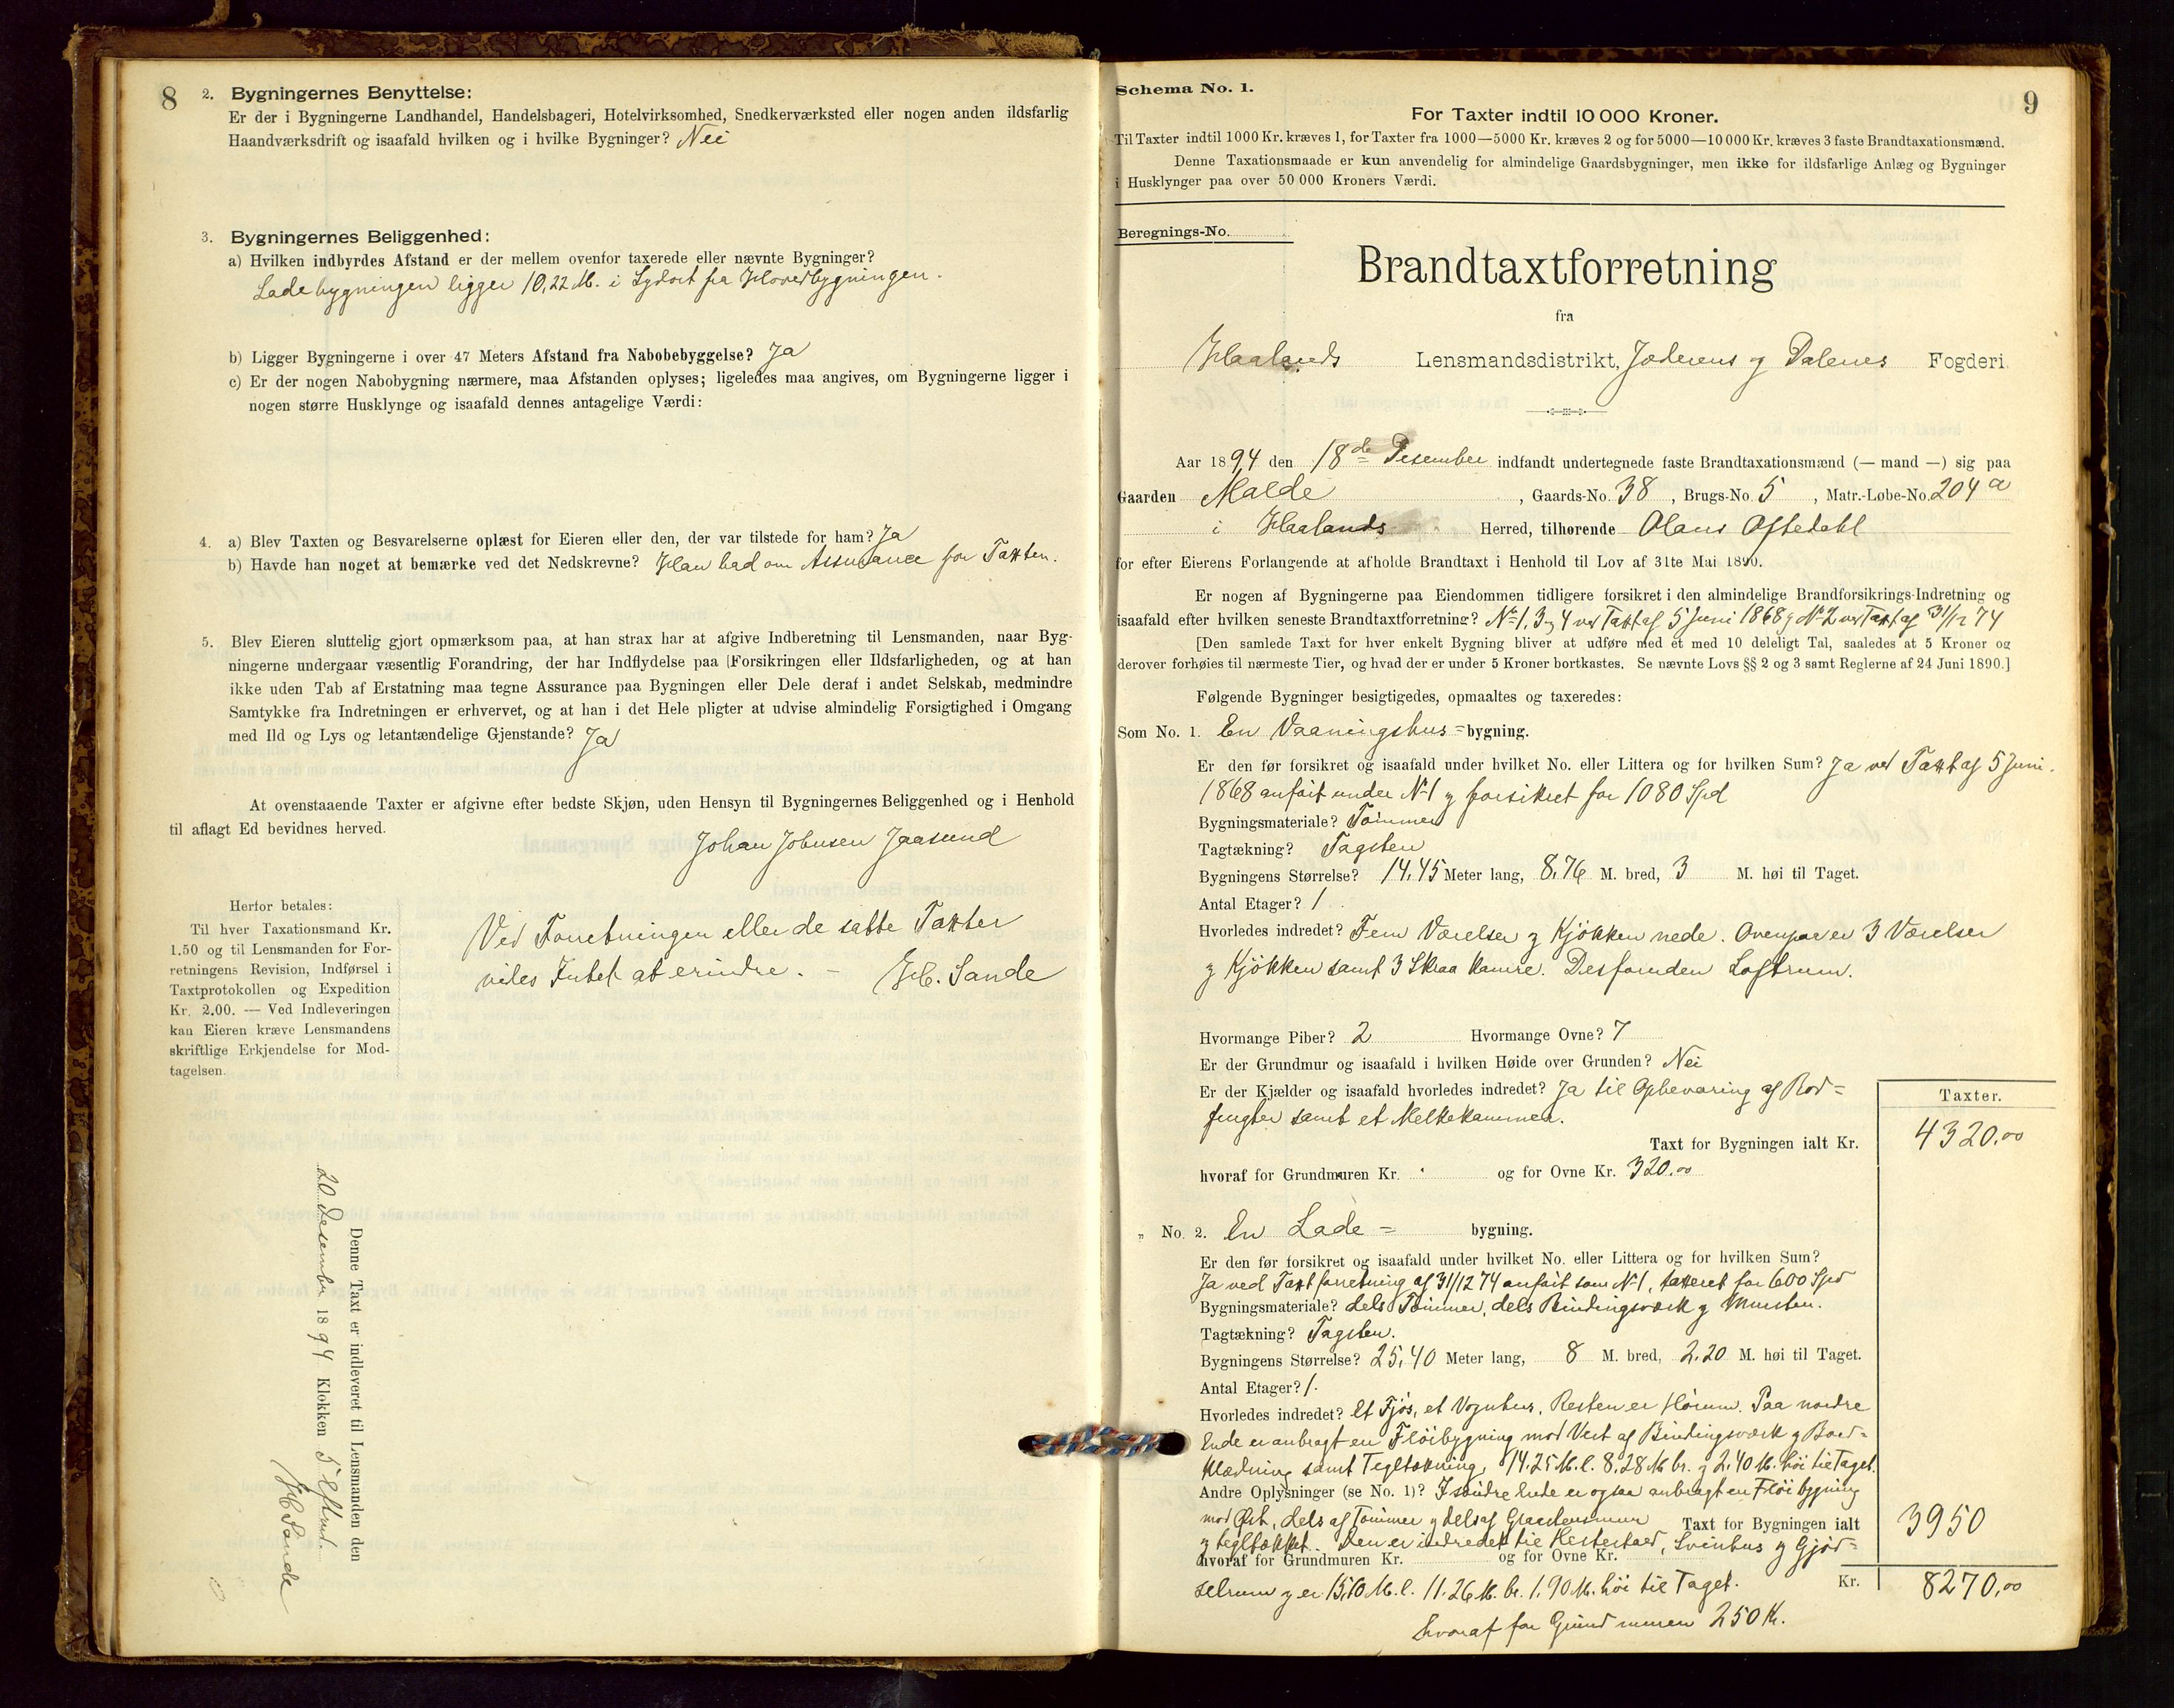 8
2. Bygningernes Benyttelse:
Er der i Bygningerne Landhandel, Handelsbageri, Hotelvirksomhed, Snedkerværksted eller nogen anden ildsfarlig
Haandværksdrift og isaafald hvilken og i hvilke Bygninger? Nei
3. Bygningernes Beliggenhed:
a) Hvilken indbyrdes Afstand er der mellem ovenfor taxerede eller nævnte Bygninger?
Ladebygningen ligger 10,22 M. i Sydost fra Hovedbygningen.
b) Ligger Bygningerne i over 47 Meters Afstand fra Nabobebyggelse? Ja
c) Er der nogen Nabobygning nærmere, maa Afstanden oplyses; ligeledes maa angives, om Bygningerne ligger i
nogen større Husklynge og isaafald dennes antagelige Værdi:
4. a) Blev Taxten og Besvarelserne oplæst for Eieren eller den, der var tilstede for ham? Ja
b) Havde han noget at bemærke ved det Nedskrevne? Han bad om Assurance for Taxten.
5. Blev Eieren sluttelig gjort opmærksom paa, at han strax har at afgive Indberetning til Lensmanden, naar Byg-
ningerne undergaar væsentlig Forandring, der har Indflydelse paa Forsikringen eller Ildsfarligheden, og at han
ikke uden Tab af Erstatning maa tegne Assurance paa Bygningen eller Dele deraf i andet Selskab, medmindre
Samtykke fra Indretningen er erhvervet, og at han i det Hele pligter at udvise almindelig Forsigtighed i Omgang
med Ild og Lys og letantændelige Gjenstande? Ja
At ovenstaaende Taxter er afgivne efter bedste Skjøn, uden Hensyn til Bygningernes Beliggenhed og i Henhold
til aflagt Ed bevidnes herved.
Johan Johnsen Jaasund
Herfor betales:
Til hver Taxationsmand Kr.
1.50 og til Lensmanden for For-
retningens Revision, Indførsel i
Taxtprotokollen og Expedition
Kr. 2.00. — Ved Indleveringen
kan Eieren kræve Lensmandens
skriftlige Erkjendelse for Mod-
tagelsen.
Ved Forretningen eller de satte Taxter
vides Intet at erindre. — Sande
Denne Taxt er indleveret til Lensmanden den
20 Desember 1894 Klokken 5 Eftmd.
Sande
Schema No. 1.
9
For Taxter indtil 10 000 Kroner.
Til Taxter indtil 1000 Kr. kræves 1, for Taxter fra 1000—5000 Kr. kræves 2 og for 5000—10 000 Kr. kræves 3 faste Brandtaxationsmænd.
Denne Taxationsmaade er kun anvendelig for almindelige Gaardsbygninger, men ikke for ildsfarlige Anlæg og Bygninger
i Husklynger paa over 50 000 Kroners Værdi.
Beregnings-No.
Brandtaxtforretning
fra
Haalands Lensmandsdistrikt, Jæderens og Dalenes Fogderi.
Aar 1894 den 18de Desember indfandt undertegnede faste Brandtaxationsmænd (— mand —) sig paa
Gaarden Malde, Gaards-No. 38, Brugs-No. 5, Matr.-Løbe-No. 204 a
i Haalands Herred, tilhørende Olaus Oftedahl
for efter Eierens Forlangende at afholde Brandtaxt i Henhold til Lov af 31te Mai 1890.
Er nogen af Bygningerne paa Eiendommen tidligere forsikret i den almindelige Brandforsikrings-Indretning og
isaafald efter hvilken seneste Brandtaxtforretning? No 1, 3 og 4 ved Taxt af 5 Juni 1868 og No 2 ved Taxt af 31/12 74
[Den samlede Taxt for hver enkelt Bygning bliver at udføre med et med 10 deleligt Tal, saaledes at 5 Kroner og
derover forhøies til nærmeste Tier, og hvad der er under 5 Kroner bortkastes. Se nævnte Lovs §§ 2 og 3 samt Reglerne af 24 Juni 1890.]
Følgende Bygninger besigtigedes, opmaaltes og taxeredes:
Som No. 1. En Vaaningshus-bygning.
Er den før forsikret og isaafald under hvilket No. eller Littera og for hvilken Sum? Ja ved Taxt af 5 Juni
1868 anført under No 1 og forsikret for 1080 Spd
Bygningsmateriale? Tømmer
Tagtækning? Tagsten
Bygningens Størrelse? 14,45 Meter lang, 8,76 M. bred, 3 M. høi til Taget.
Antal Etager? 1
Hvorledes indredet? Fem Værelser og Kjøkken nede. Ovenpaa er 3 Værelser
og Kjøkken samt 3 Skraakamre. Desforuden Loftrum.
Hvormange Piber? 2 Hvormange Ovne? 7
Er der Grundmur og isaafald i hvilken Høide over Grunden? Nei
Er der Kjælder og isaafald hvorledes indredet? Ja til Opbevaring af Rod-
frugter samt et Melkekammer.
Taxter.
Taxt for Bygningen ialt Kr. 4320,00
hvoraf for Grundmuren Kr. og for Ovne Kr. 320,00
„ No. 2. En Lade- bygning.
Er den før forsikret og isaafald under hvilket No. eller Littera og for hvilken Sum?
Ja ved Taxtforretning af 31/12 74 anført som No 1, taxeret for 600 Spd
Bygningsmateriale? dels Tømmer, dels Bindingsværk og Mursten.
Tagtækning? Tagsten.
Bygningens Størrelse? 25,40 Meter lang, 8 M. bred, 2,20 M. høi til Taget.
Antal Etager? 1.
Hvorledes indredet? Et Fjøs, et Vognhus, Resten er Hørum. Paa nordre
Ende er anbragt en Fløibygning mod Vest af Bindingsværk og Bord-
klædning samt Tegltækning, 14,25 M. l. 8,28 M br. og 2,40 M. høi til Taget.
Andre Oplysninger (se No. 1)? I søndre Ende er ogsaa anbragt en Fløibygning
mod Øst, dels af Tømmer og dels af Graastensmur Taxt for Bygningen ialt 3950
og tegltækket. Den er indredet til Hestestald, Svinhus og Gjød-
hvoraf for Grundmuren Kr. og for Ovne Kr.
selrum og er 15,10 M. l. 11.26 M. br. 1.90 M. høi til Taget. Kr. 8270,00
hvoraf for Grundmuren 250 Kr.